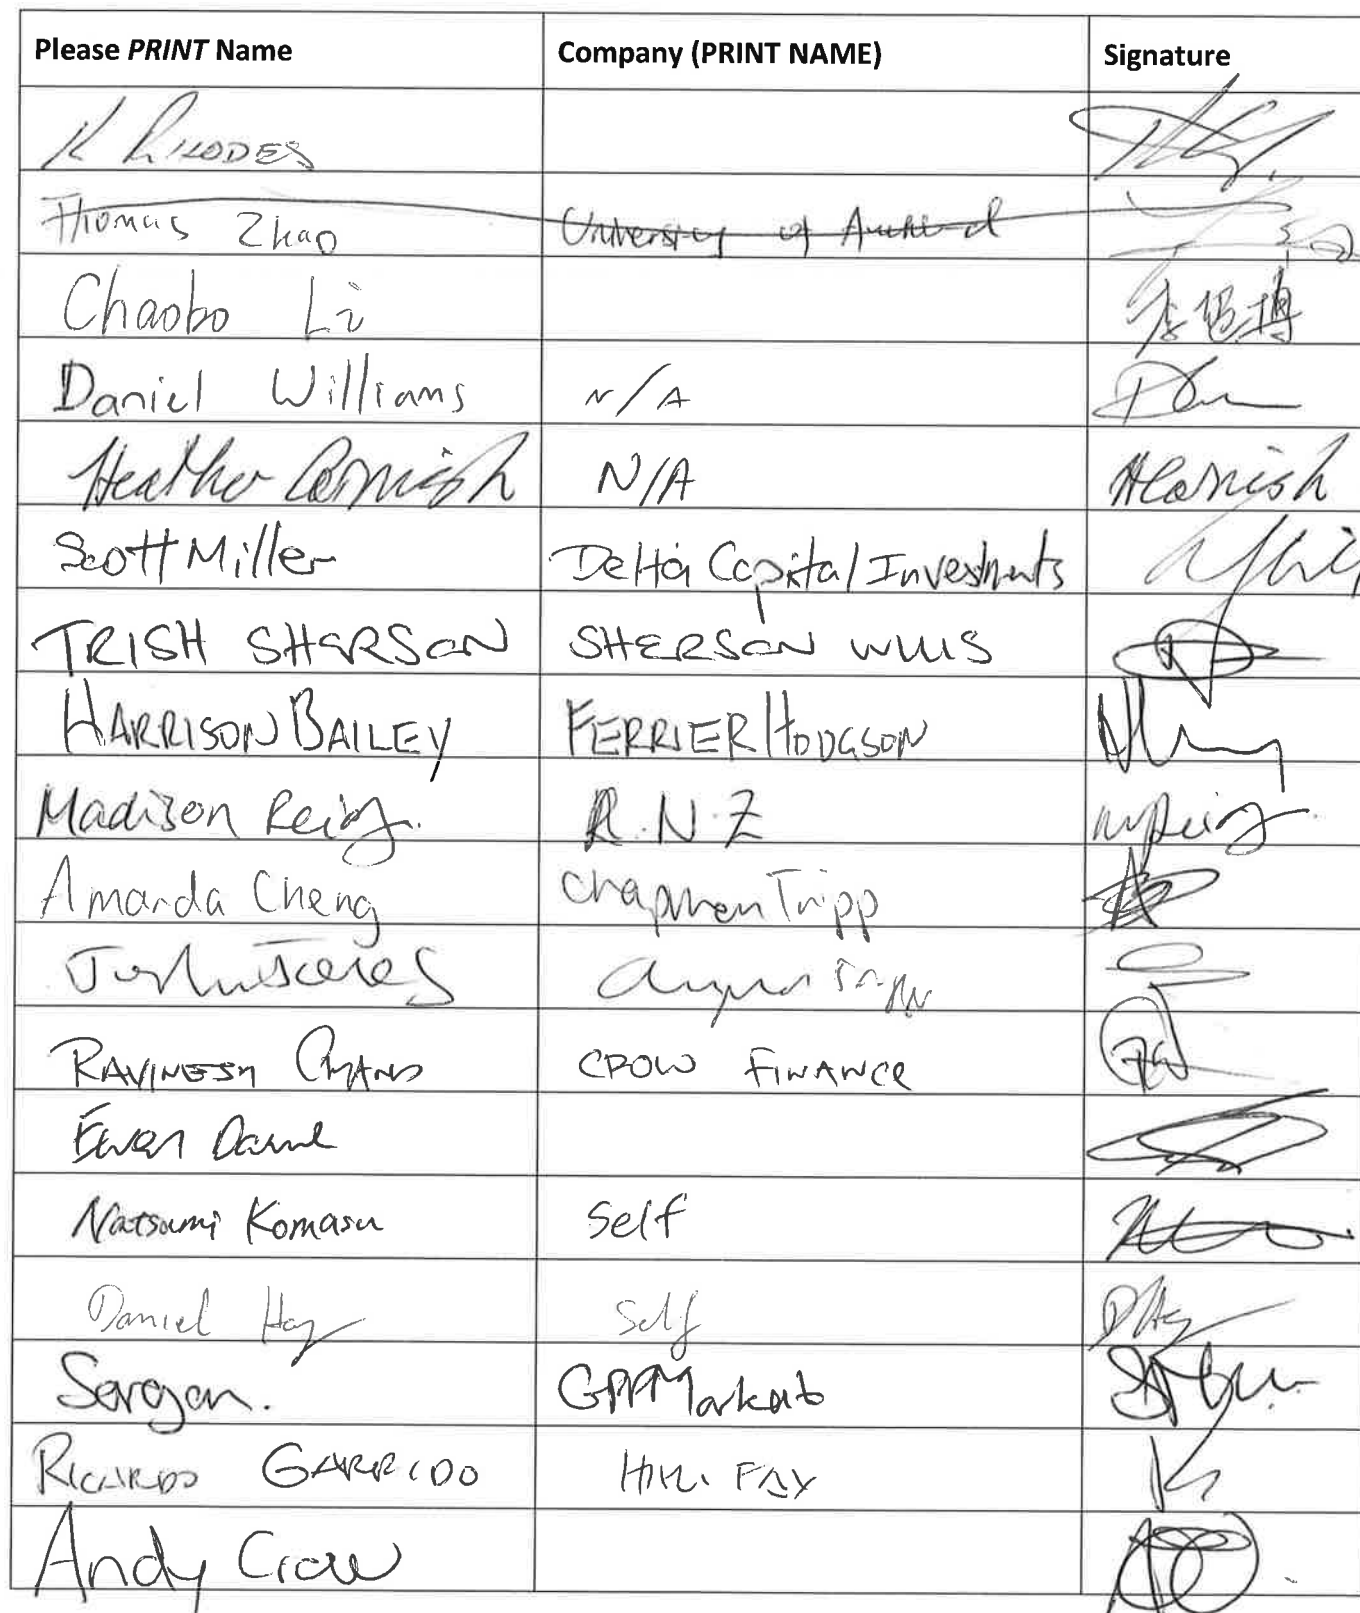 Please PRINT Name Company (PRINT NAME) Signature
K RHODES
Thomas Zhao University of Auckland
Chaobo Li 李超博
Daniel Williams N/A
Heather Cornish N/A HCornish
Scott Miller Delta Capital Investments
TRISH SHERSON SHERSON WILLIS
HARRISON BAILEY FERRIER HODGSON
Madison Reidy. R.N.Z MReidy.
Amanda Cheng Chapman Tripp
Chapman Tripp
RAVINESH CHAND CROW FINANCE
Ewen
Natsumi Komasu Self
Daniel Hay Self DHay
GPPMarkets
RICARDO GARRIDO
Andy Crow